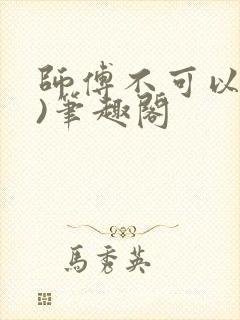 師傅不可以
)筆趣閣
馬秀英